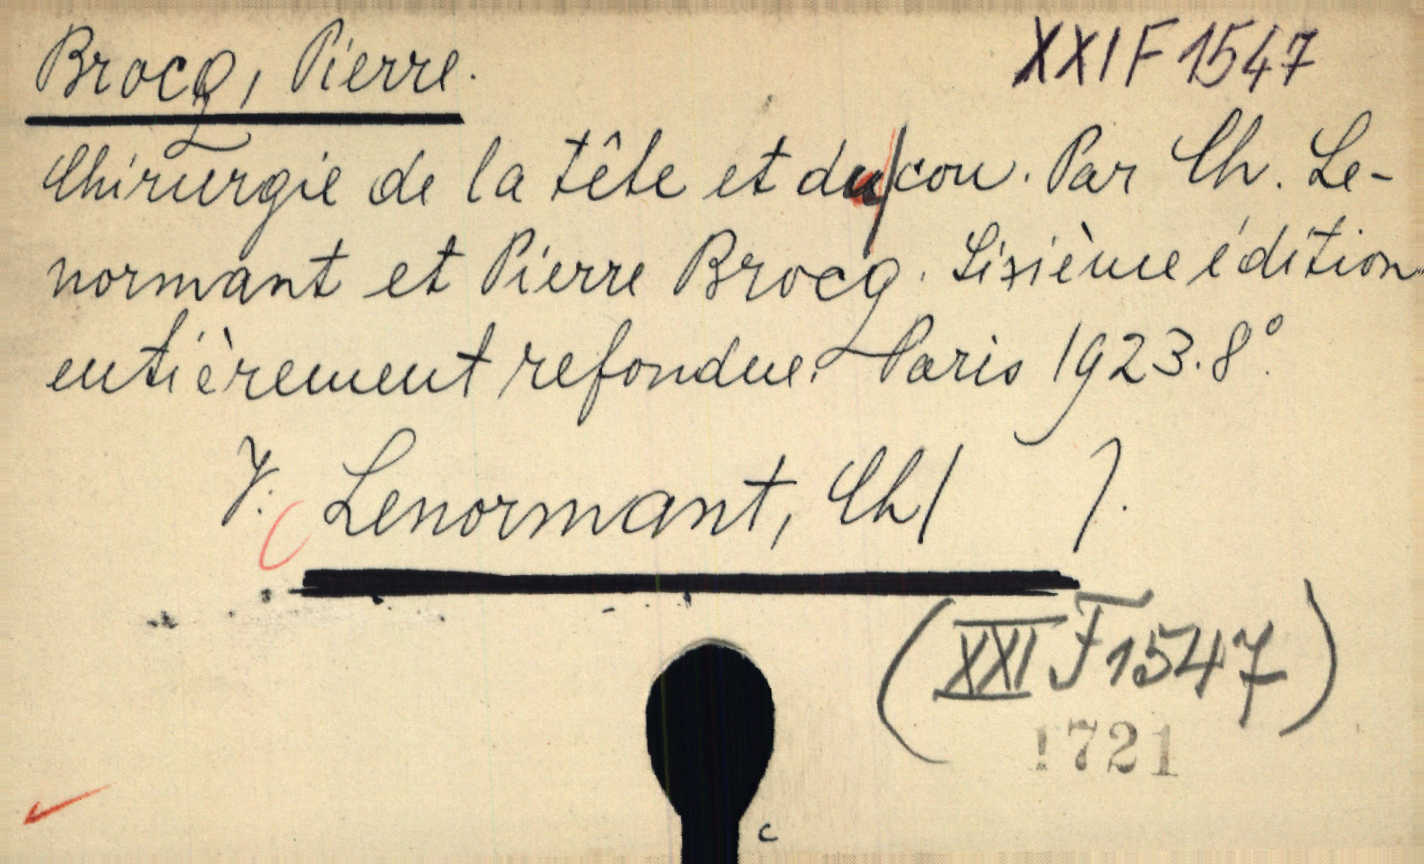 Brocq, Pierre. XXI F 1547
Chirurgie de la tête et du cou. Par Ch. Le-
normant et Pierre Brocq. Sixième édition
entièrement refondue. Paris 1923. 8°.
V. Lenormant, Ch( ).
(XXI F 1547)
1721
c